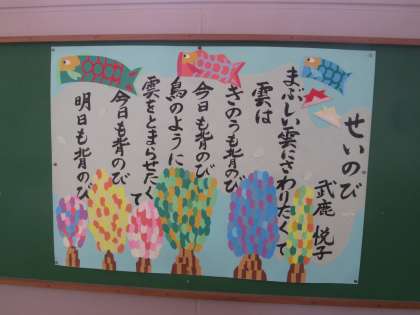 せいのび
武鹿 悦子
まぶしい雲にさわりたくて
雲は
きのうも背のび
今日も背のび
鳥のように
雲をとまらせたくて
今日も背のび
明日も背のび